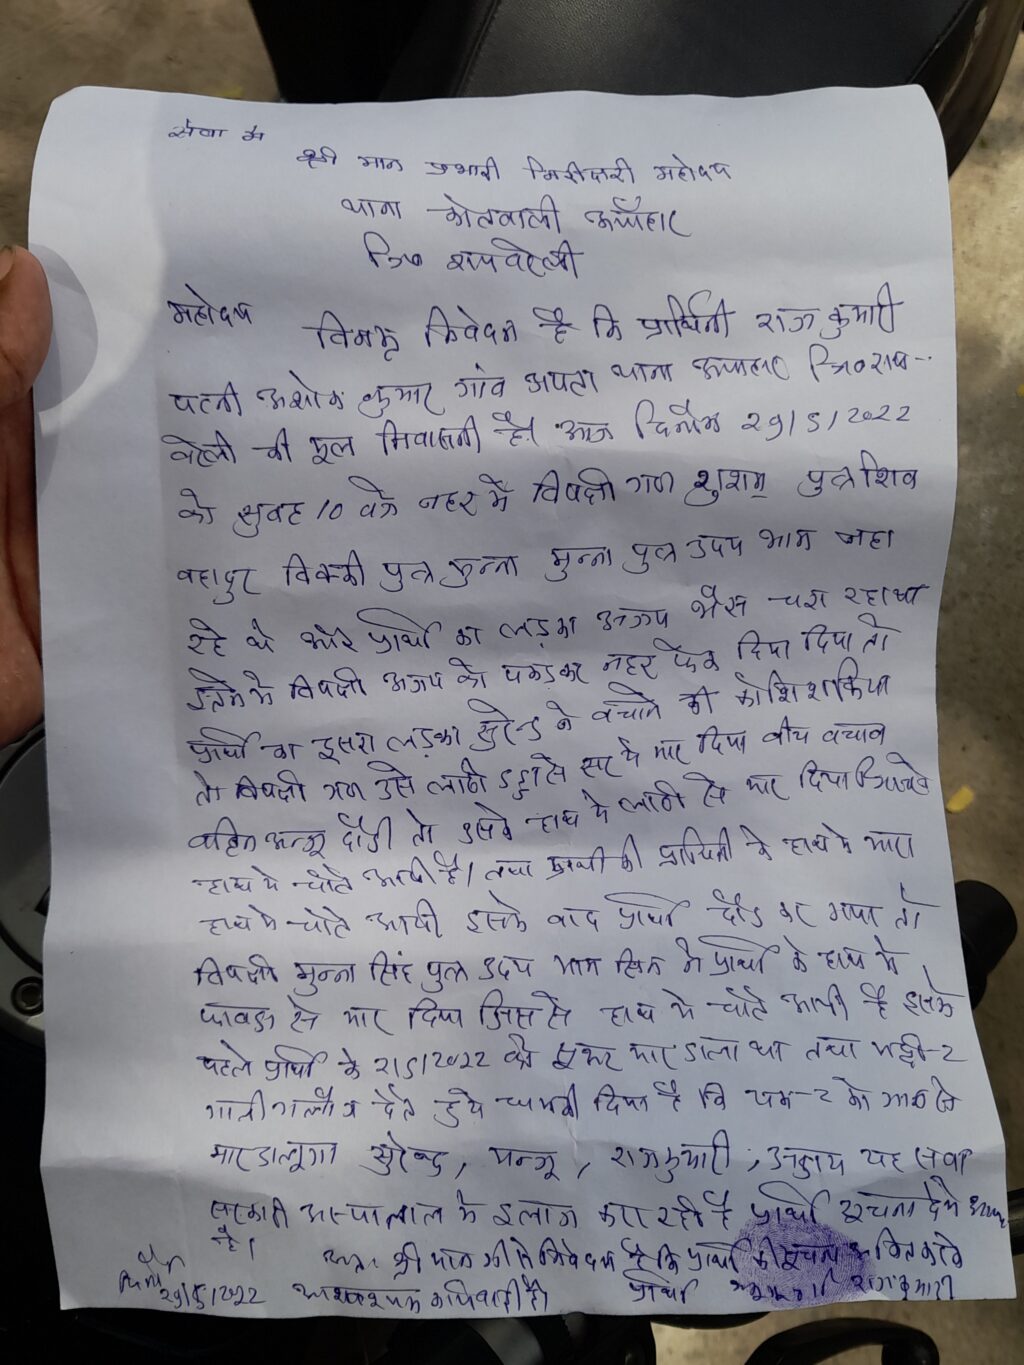 सेवा मे
श्री मान प्रभारी निरीक्षरी महोदय
थाना कोतवाली ऊचाँहार
जि० रायवरेली
महोदय विनम्र निवेदन है कि प्रार्थिनी राज कुमारी
पत्नी अशोक कुमार गांव अपटा थाना ऊचाहार जि० राय-
वरेली की मूल निवासनी है। आज दिनाँक 29/5/2022
को सुवह 10 वजे नहर मे विपक्षी गण शुशम पुत्र शिव
वहादुर विक्की पुत्र मुन्ना मुन्ना पुत्र उदय भान नहा
रहे थे और प्रार्थी का लड़का अजय भैस चरा रहा था
इतने मे विपक्षी अजय को पकड़कर नहर फेक दिया दिया तो
प्रार्थी का दूसरा लड़का सुरेन्द्र ने वचाने की कोशिश किया
तो विपक्षी गण उसे लाठी डन्डा से सर मे मार दिया वीच वचाव
वहिन अन्जू दौड़ी तो उसके हाथ मे लाठी से मार दिया जिससे
हाथ मे चोटे आयी है। तथा प्रार्थी की प्रार्थिनी के हाथ मे मारा
हाथ मे चोटे आयी इसके वाद प्रार्थी दौड़ कर गया तो
विपक्षी मुन्ना सिंह पुत्र उदय भान सिंह ने प्रार्थी के हाथ मे
फावड़ा से मार दिया जिससे हाथ मे चोटे आयी है इसके
पहले प्रार्थी के 2/5/2022 को सूकर मार डाला था तथा भद्दी-2
गाली गलौज देते हुये धमकी दिया है कि एक-2 को जान से
मार डालूगा सुरेन्द्र, अन्जू, राजकुमारी, अजय यह सवी
सरकारी अस्पालाल मे इलाज करा रही है प्रार्थी सूचना देने आया
है। अतः श्री मान जी से निवेदन है कि प्रार्थी की सूचना अंकित करके
आवश्यक कार्यवाही हो। प्रार्थी राजकुमारी
29/5/2022